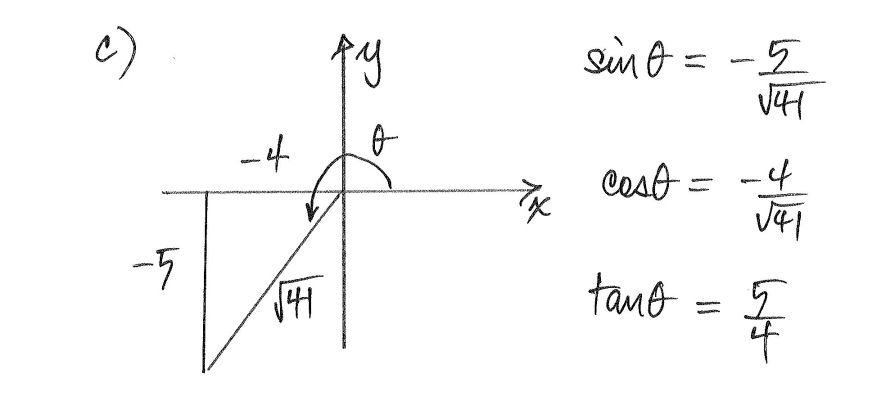 c)
y
θ
-4
x
-5
√41
sinθ = -5/√41
cosθ = -4/√41
tanθ = 5/4